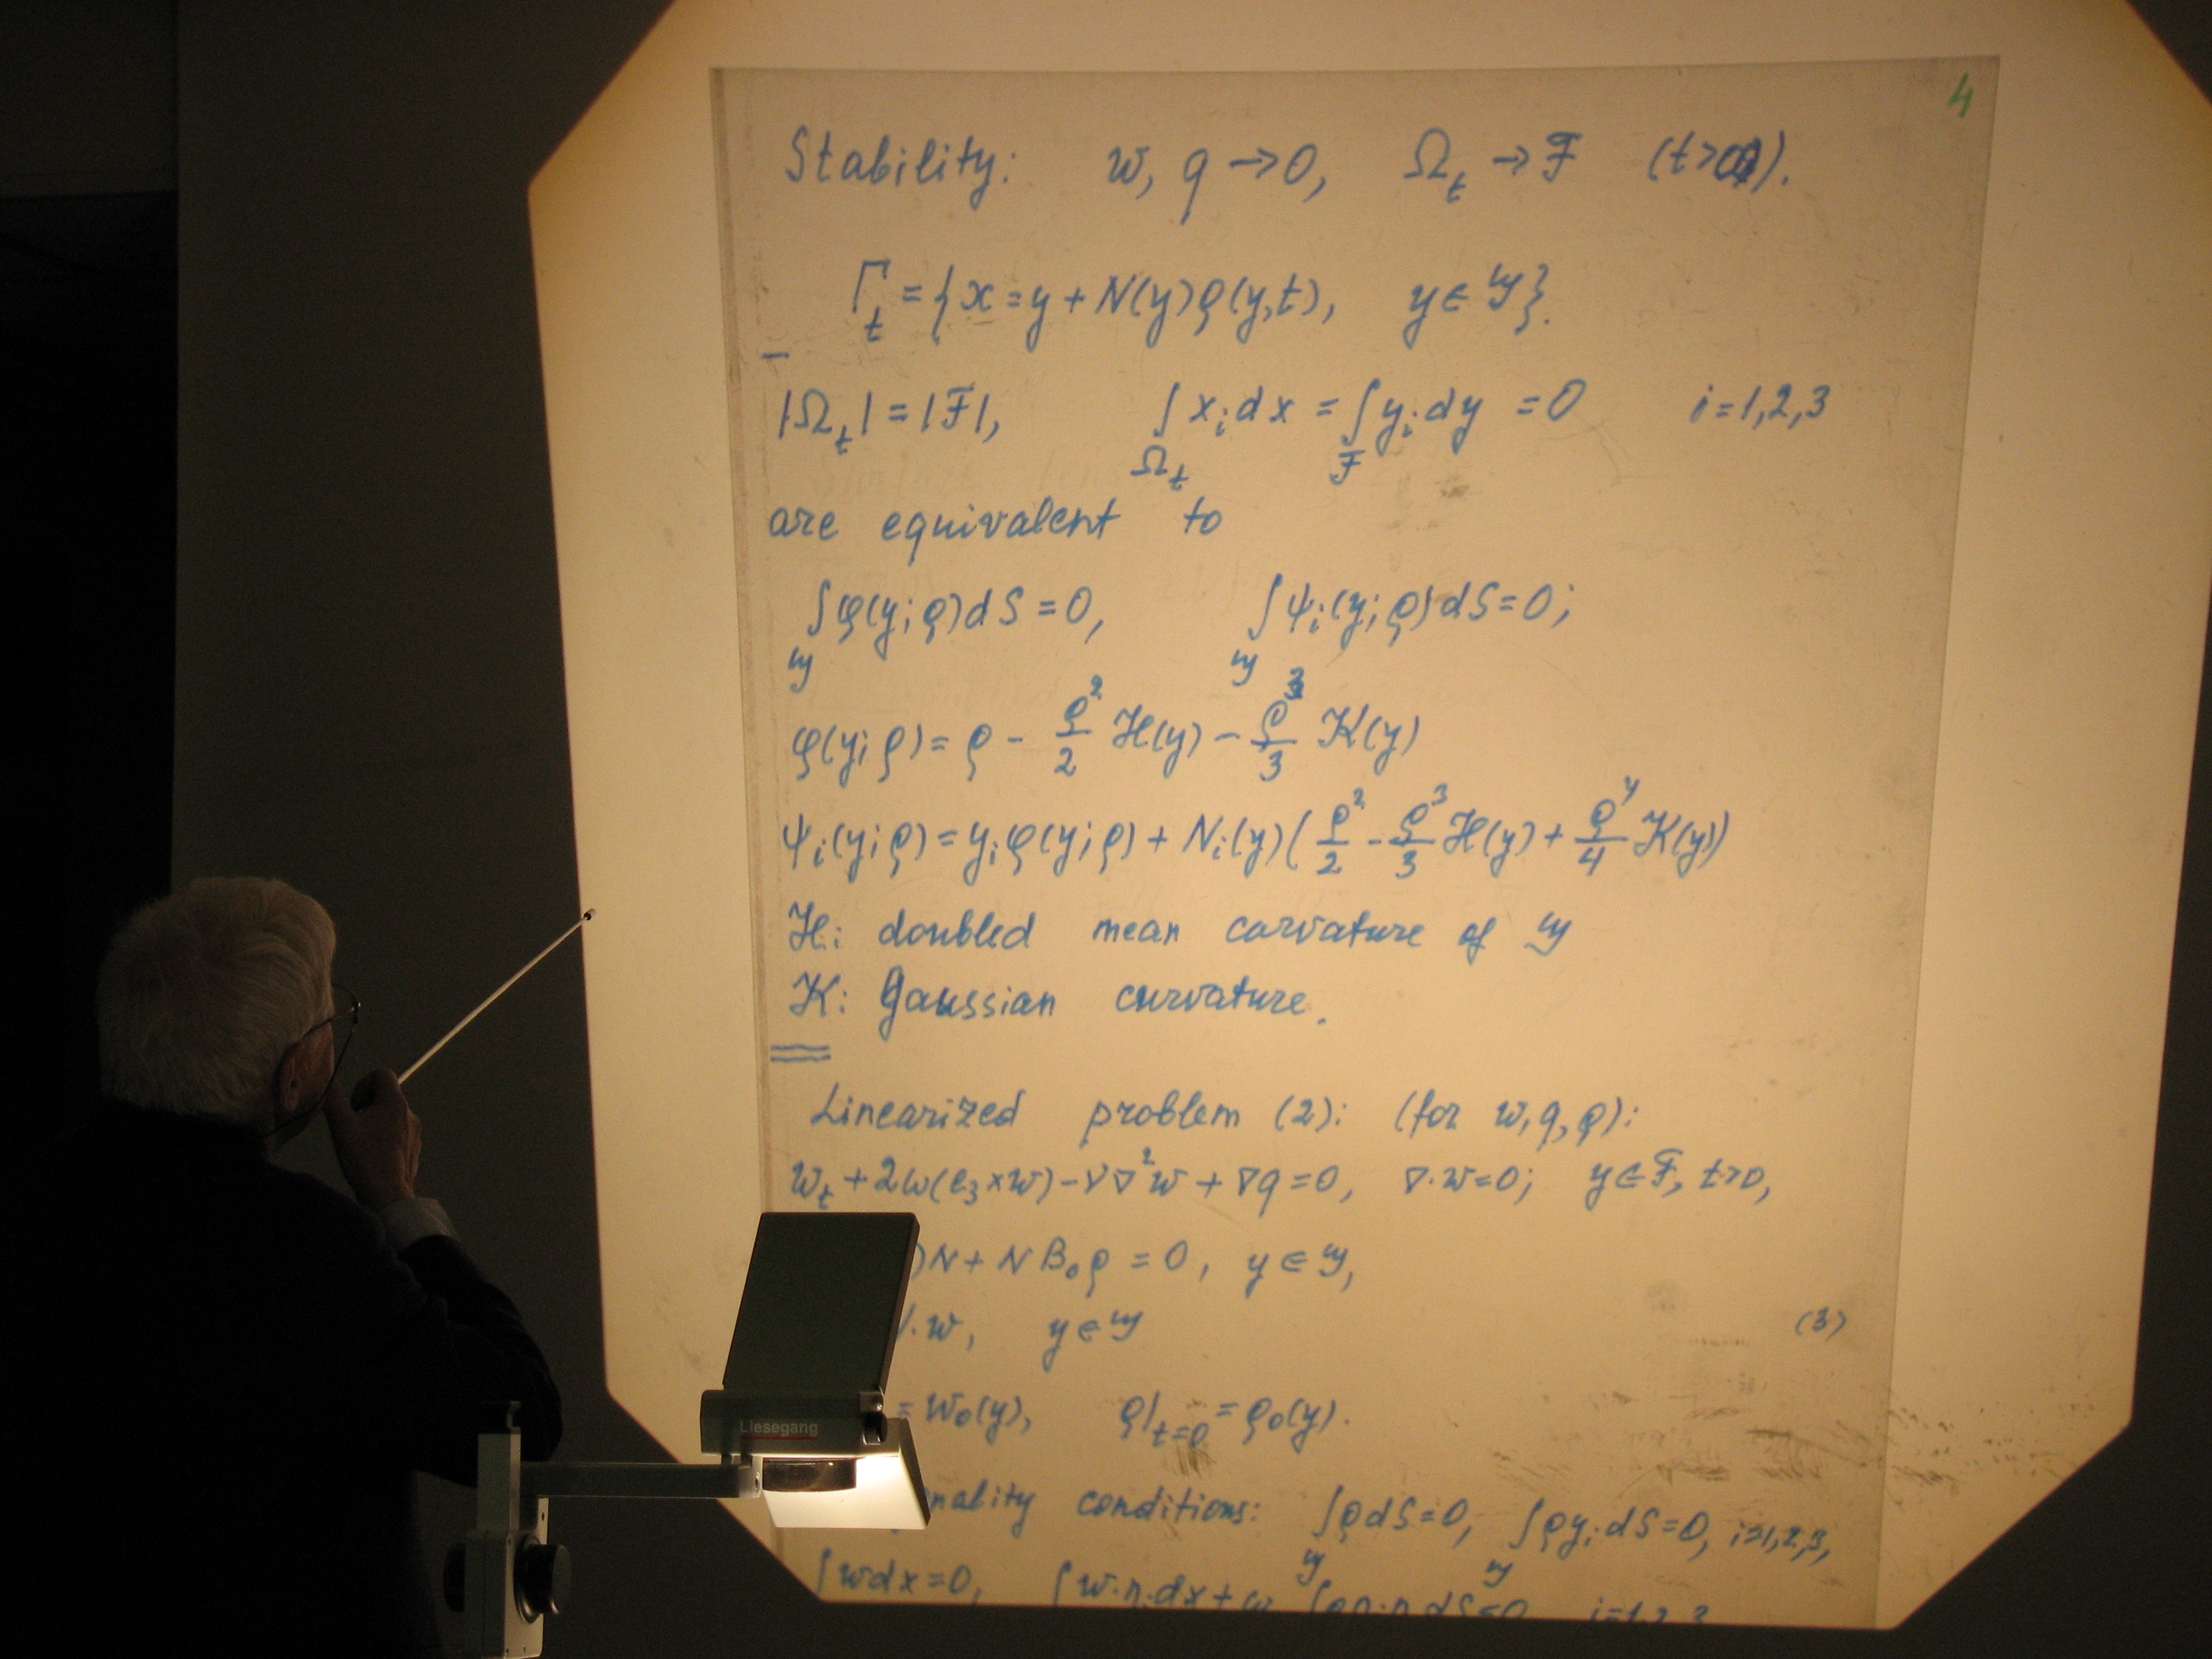 4
Stability: w, q → 0, Ω_t → ℱ (t > ).
Γ_t = {x = y + N(y)ρ(y,t), y ∈ 𝒢}.
|Ω_t| = |ℱ|, ∫_{Ω_t} x_i dx = ∫_ℱ y_i dy = 0 i = 1,2,3
are equivalent to
∫_𝒢 φ(y; ρ)dS = 0, ∫_𝒢 ψ_i(y; ρ)dS = 0;
φ(y; ρ) = ρ - ρ²/2 ℋ(y) - ρ³/3 𝒦(y)
ψ_i(y; ρ) = y_i φ(y; ρ) + N_i(y)(ρ²/2 - ρ³/3 ℋ(y) + ρ⁴/4 𝒦(y))
ℋ: doubled mean curvature of 𝒢
𝒦: Gaussian curvature.
Linearized problem (2): (for w, q, ρ):
w_t + 2ω(e_3 × w) - ν∇²w + ∇q = 0, ∇·w = 0; y ∈ ℱ, t > 0,
)N + N B_0 ρ = 0, y ∈ 𝒢,
·w, y ∈ 𝒢 (3)
= w_0(y), ρ|_{t=0} = ρ_0(y).
Liesegang
nality conditions: ∫_𝒢 ρdS = 0, ∫_𝒢 ρy_i dS = 0, i = 1,2,3,
∫ w dx = 0, ∫ w·η_i dx + ω ∫ρη·η dS = 0 i = 1,2,3